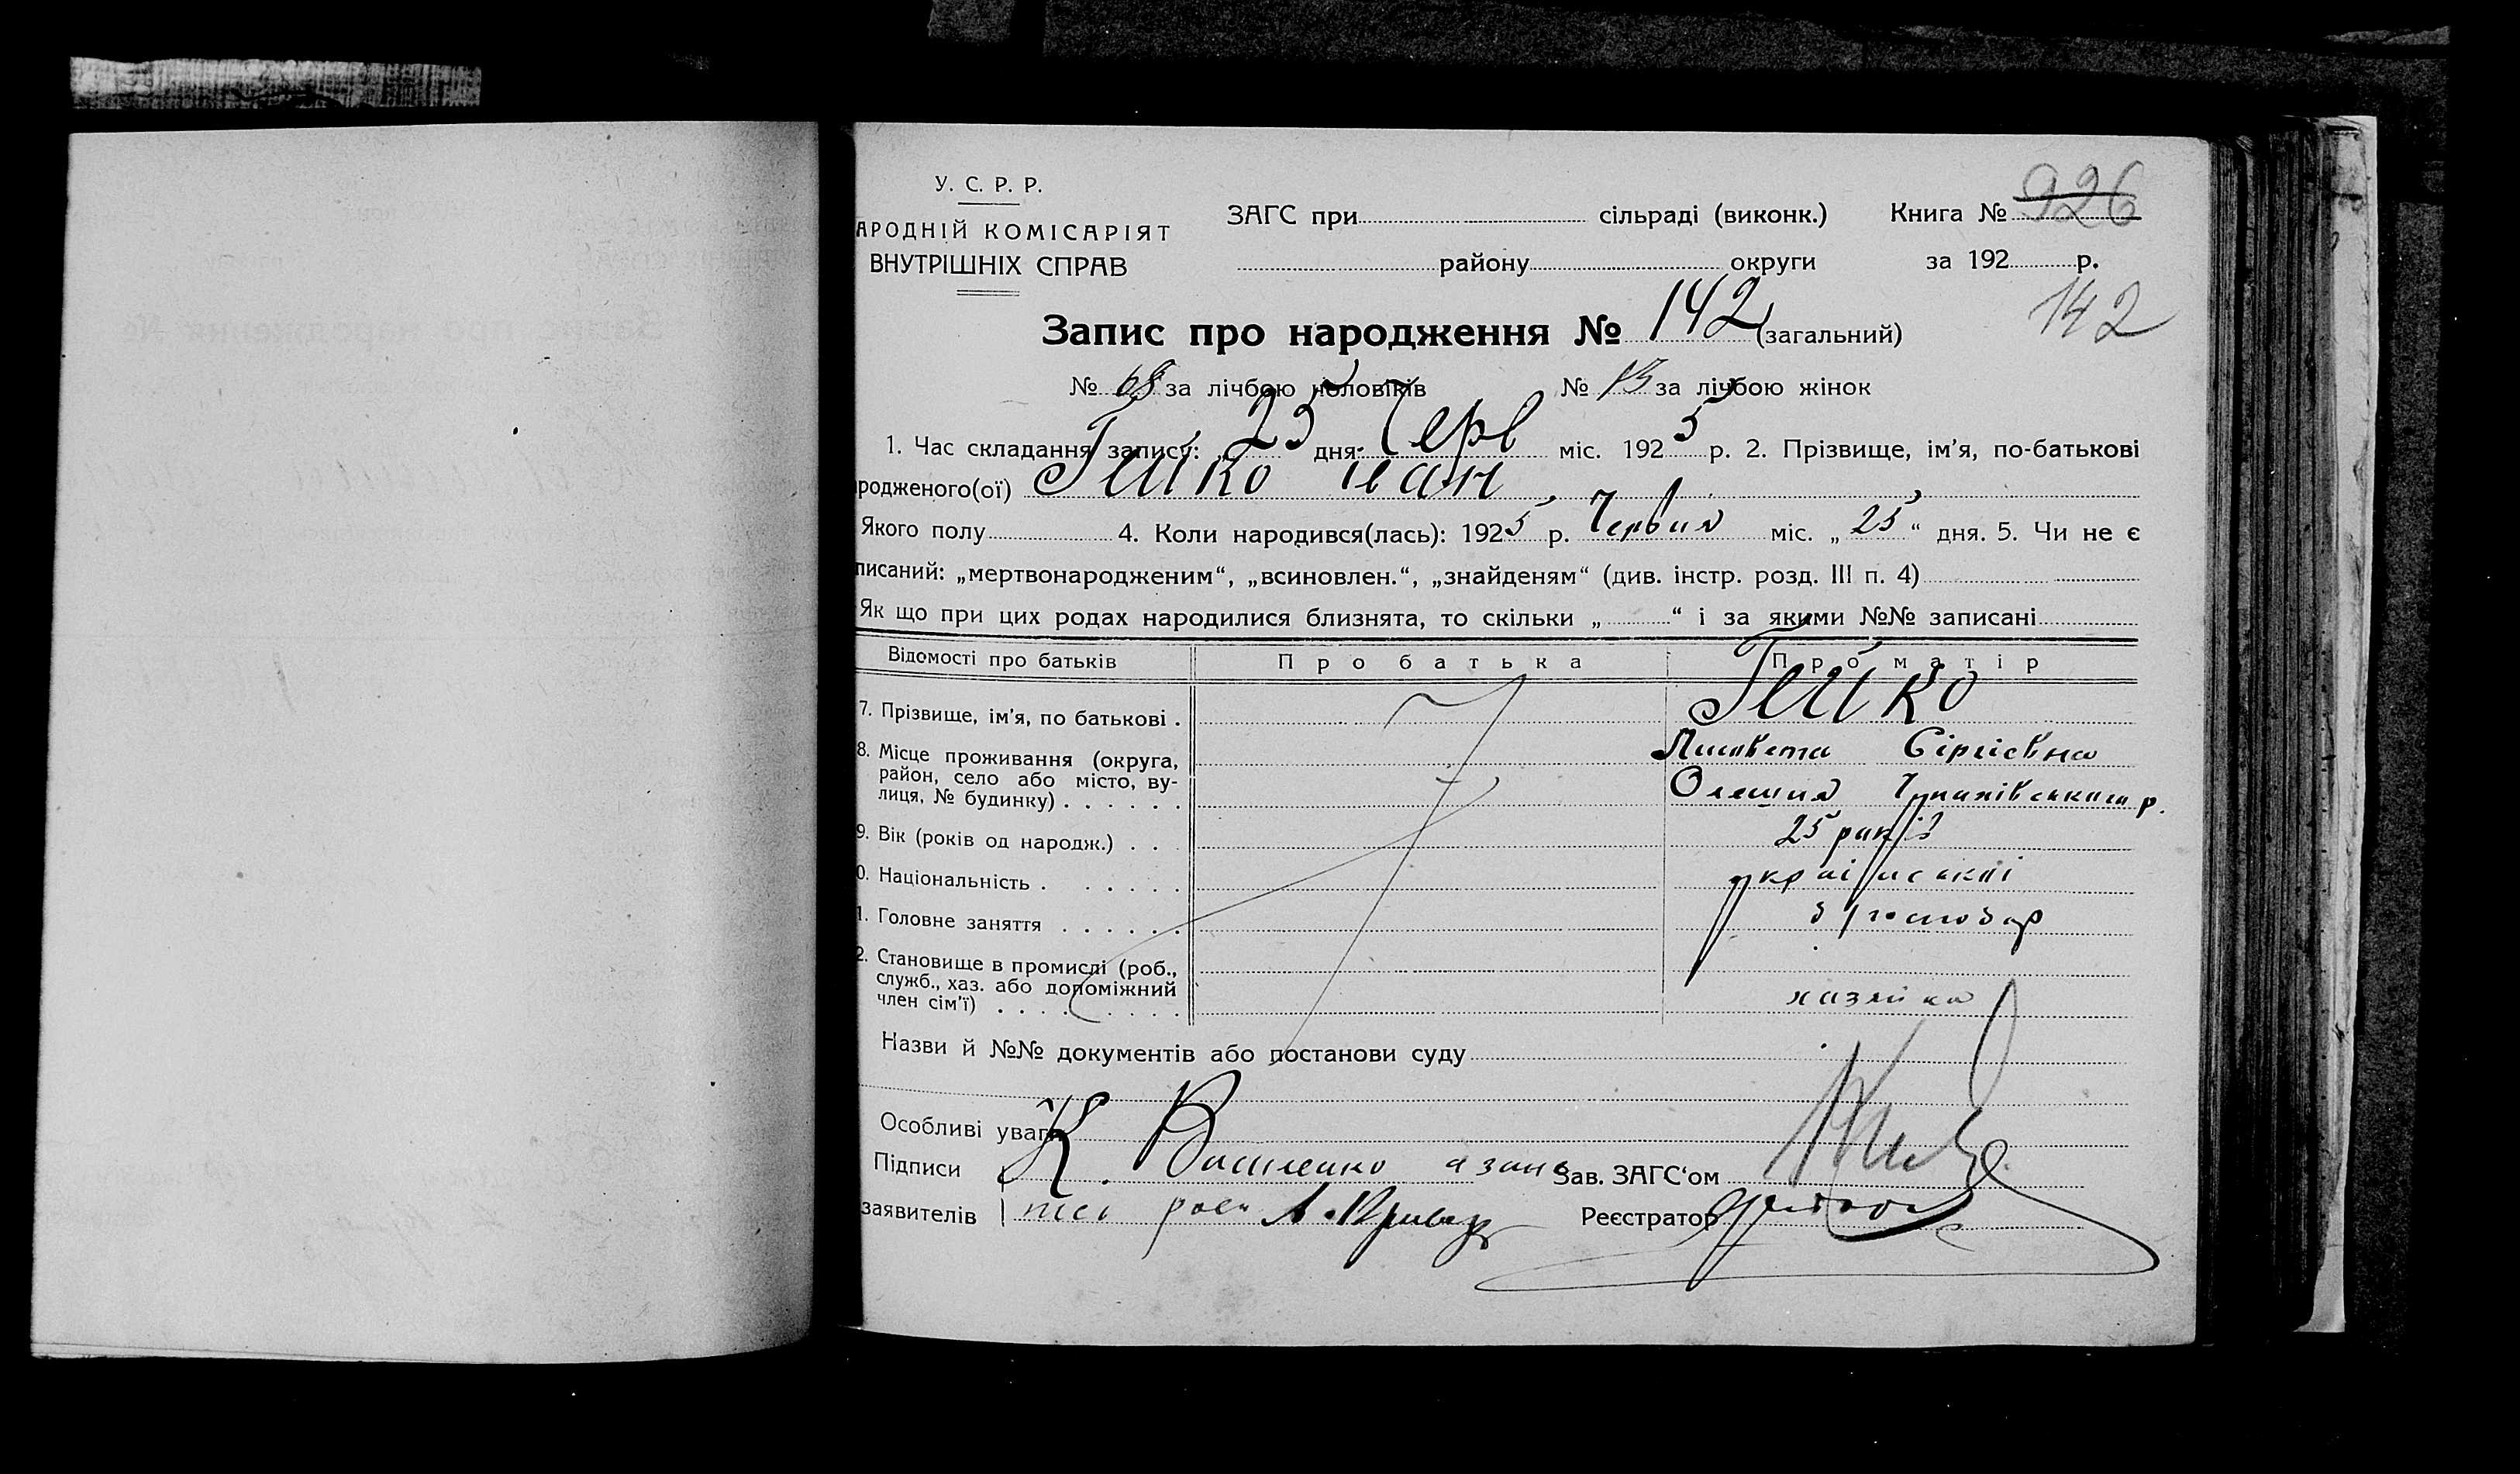 У. С. Р. Р.
АРОДНІЙ КОМІСАРІЯТ
ВНУТРІШНІХ СПРАВ
ЗАГС при сільраді (виконк.) Книга № 926
району округи за 192 р.
142
Запис про народження № 142 (загальний)
№ 68 за лічбою чоловіків № 73 за лічбою жінок
1. Час складання запису: 25 дня Черв міс. 1925 р. 2. Прізвище, ім'я, по-батькові
родженого(ої) Гейко Іван
Якого полу 4. Коли народився(лась): 1925 р. Червня міс. „25“ дня. 5. Чи не є
писаний: „мертвонародженим“, „всиновлен.“, „знайденям“ (див. інстр. розд. III п. 4)
Як що при цих родах народилися близнята, то скільки „ “ і за якими №№ записані
Відомості про батьків Про батька Про матір
7. Прізвище, ім'я, по батькові . Гейко
Лисавета Сіргієвна
8. Місце проживання (округа,
район, село або місто, ву-
лиця, № будинку) . . . . . . Олешня Чупахівського р.
9. Вік (років од народж.) . . . 25 років
0. Національність . . . . . . українській
1. Головне заняття . . . . . .
2. Становище в промислі (роб.,
служб., хаз. або допоміжний
член сім'ї) . . . . . . . . . хазяйка
Назви й №№ документів або постанови суду
Особливі уваги
Підписи К. Василенко а за не Зав. ЗАГС'ом
заявителів роси А. Кривор Реєстратор